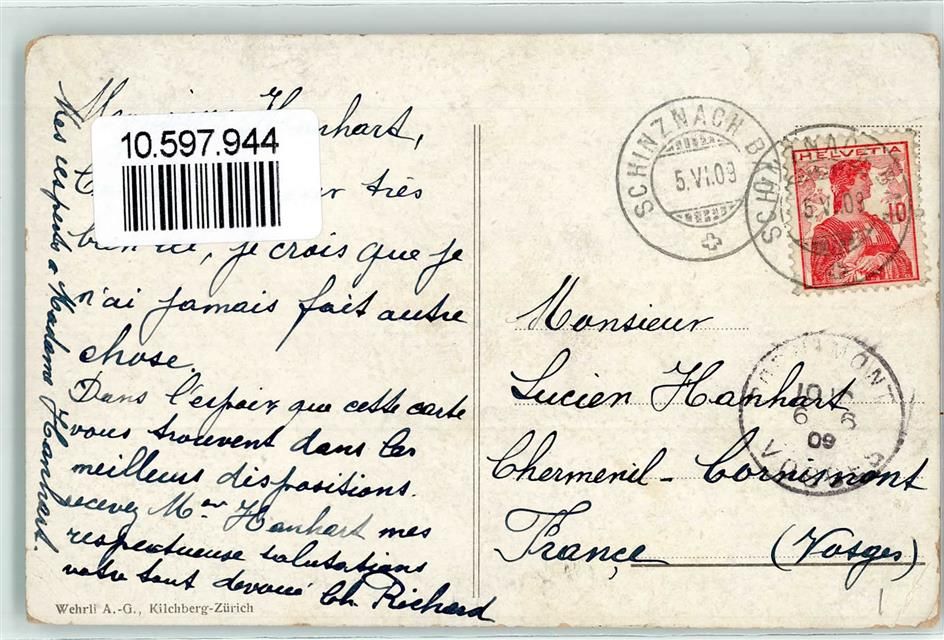 Monsieur Hanhart,
10.597.944
très
bien ici, je crois que je
n'ai jamais fait autre
chose.
Dans l'espoir que cette carte
vous trouvent dans les
meilleurs dispositions.
recevez Mr Hanhart mes
respectueuse salutations
votre tout dévoué Ch. Richard
Mes respects a Madame Hanhart.
Wehrli A.-G., Kilchberg-Zürich
SCHINZNACH BAD
5.VI.09
HELVETIA
10
5.VI.09
Monsieur
Lucien Hanhart
Chermenil-Cornimont
France (Vosges)
CORNIMONT
6
09
VOSGES
1